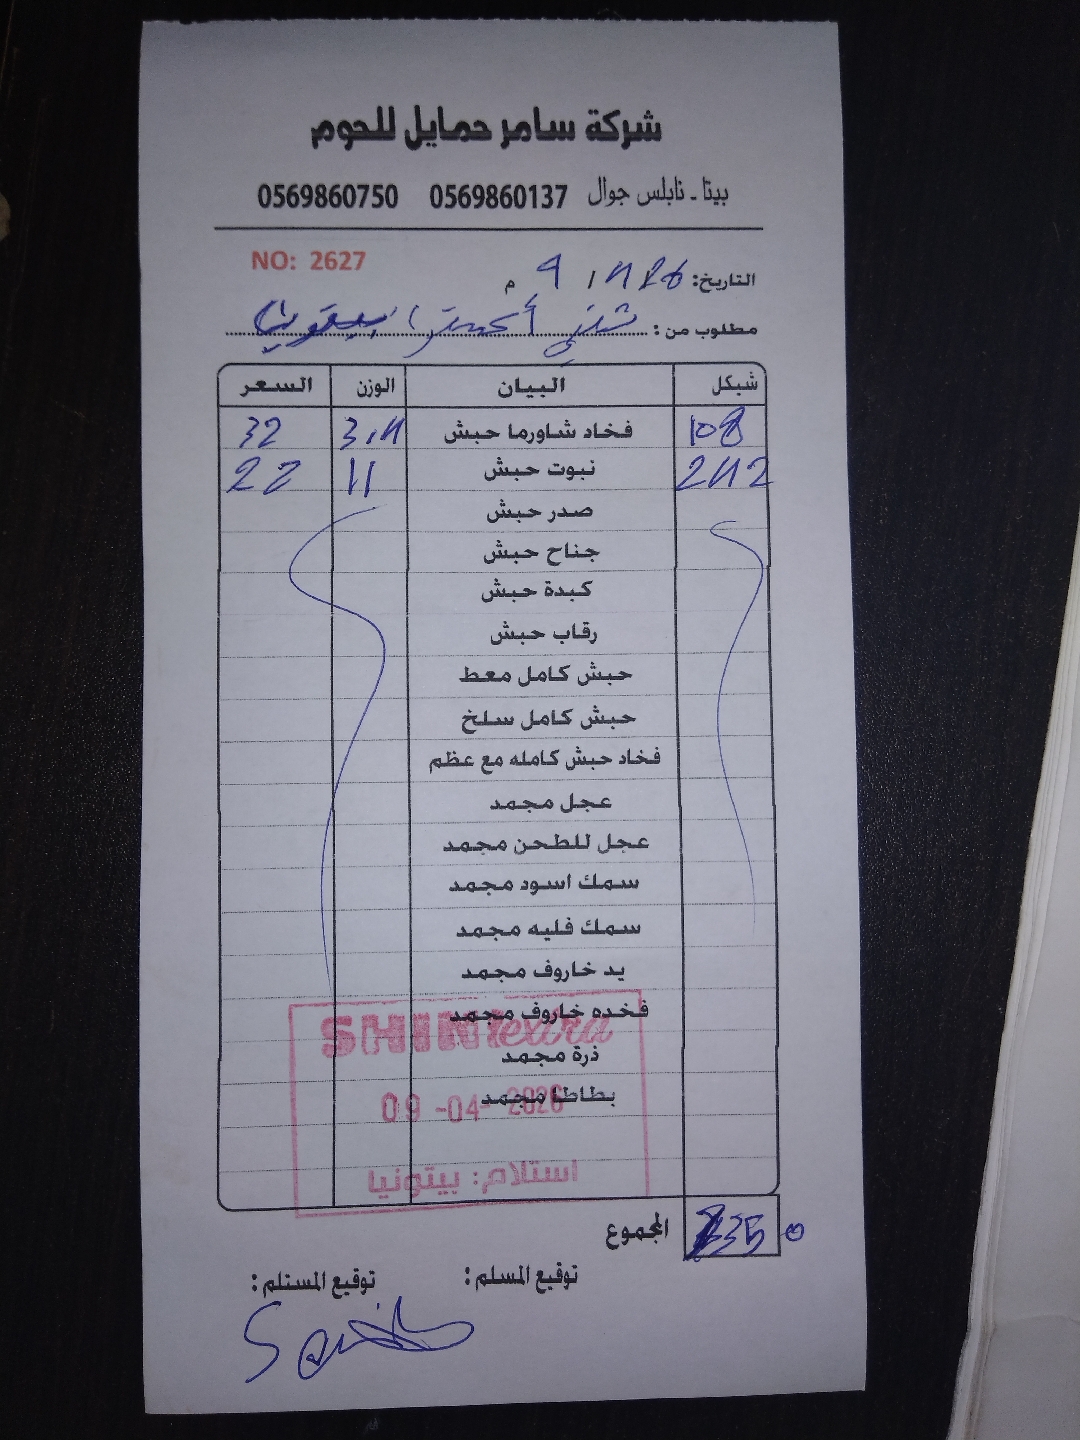 شركة سامر حمايل للحوم
بيتا - نابلس جوال 0569860137 0569860750
NO: 2627
التاريخ: 9 / 4 / 26 م
مطلوب من : شني أكسترا بيتونيا
شيكل البيان الوزن السعر
108 فخاد شاورما حبش 3,4 32
242 نبوت حبش 11 22
صدر حبش
جناح حبش
كبدة حبش
رقاب حبش
حبش كامل معط
حبش كامل سلخ
فخاد حبش كامله مع عظم
عجل مجمد
عجل للطحن مجمد
سمك اسود مجمد
سمك فليه مجمد
يد خاروف مجمد
فخده خاروف مجمد
SHINI extra
ذرة مجمد
بطاطا مجمد
09 -04- 2026
استلام: بيتونيا
المجموع 350
توقيع المسلم : توقيع المستلم :